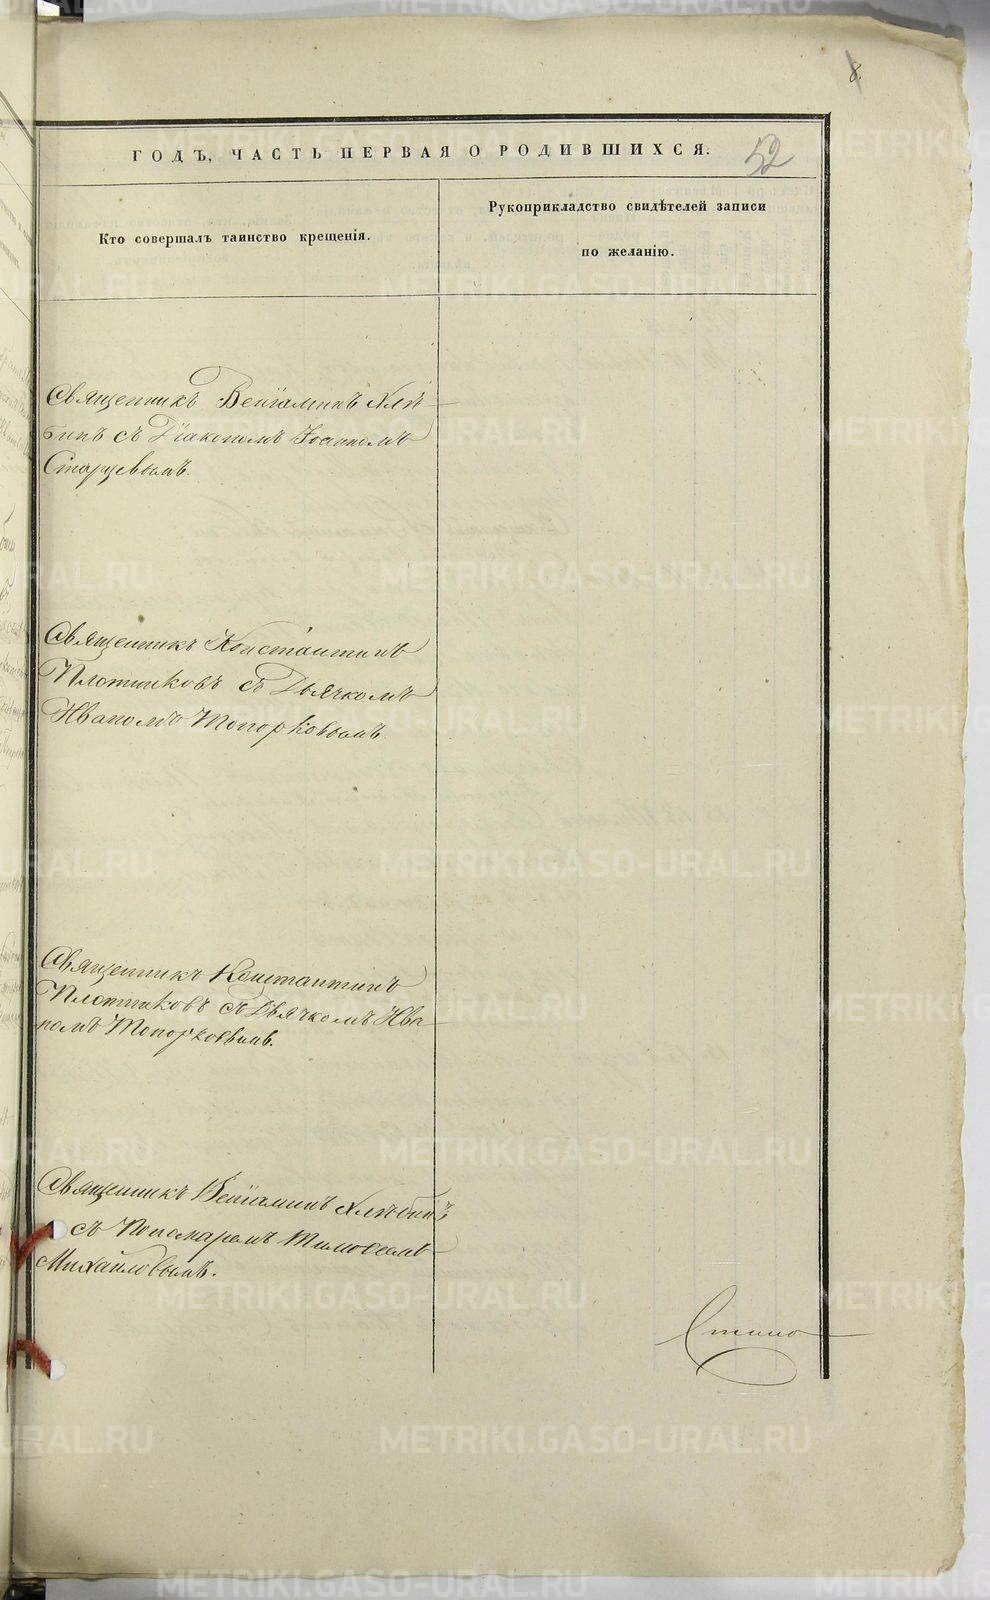 8.
ГОДЪ, ЧАСТЬ ПЕРВАЯ О РОДИВШИХСЯ. 52
Кто совершалъ таинство крещенія.
Рукоприкладство свидѣтелей записи
по желанію.
Священникъ Веніаминъ Хлѣ-
бинъ съ Діакономъ Іоанномъ
Старцевымъ.
Священникъ Константинъ
Плотниковъ съ Дьячкомъ
Иваномъ Топорковымъ
Священникъ Константинъ
Плотниковъ съ Дьячкомъ Ива-
номъ Топорковымъ.
Священникъ Веніаминъ Хлѣбинъ
съ Пономаремъ
Михайловымъ.
METRIKI.GASO-URAL.RU